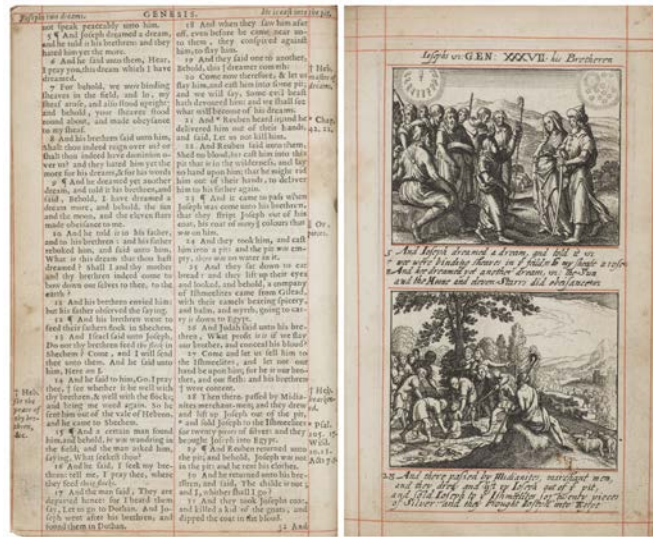 Josephs two dreams.
GENESIS.
He is cast into the pit.
not speak peaceably unto him.
5 ¶ And Joseph dreamed a dream,
and he told it his brethren: and they
hated him yet the more.
6 And he said unto them, Hear,
I pray you, this dream which I have
dreamed.
7 For behold, we were binding
sheaves in the field, and lo, my
sheaf arose, and also stood upright;
and behold, your sheaves stood
round about, and made obeysance
to my sheaf.
8 And his brethren said unto him,
Shalt thou indeed reign over us? or
shalt thou indeed have dominion o-
ver us? and they hated him yet the
more for his dreams, & for his words
9 ¶ And he dreamed yet another
dream, and told it his brethren, and
said, Behold, I have dreamed a
dream more, and behold, the sun
and the moon, and the eleven stars
made obeisance to me.
10 And he told it to his father,
and to his brethren: and his father
rebuked him, and said unto him,
What is this dream that thou hast
dreamed? Shall I and thy mother
and thy brethren indeed come to
bow down our selves to thee, to the
earth?
11 And his brethren envied him:
but his father observed the saying.
12 ¶ And his brethren went to
feed their fathers flock in Shechem.
13 And Israel said unto Joseph,
Do not thy brethren feed the flock in
Shechem? Come, and I will send
thee unto them. And he said to
him, Here am I.
14 And he said to him, Go, I pray
thee, † see whether it be well with
thy brethren, & well with the flocks,
and bring me word again. So he
sent him out of the vale of Hebron,
and he came to Shechem.
† Heb.
see the
peace of
thy bre-
thren,
&c.
15 ¶ And a certain man found
him, and behold, he was wandring in
the field, and the man asked him,
saying, What seekest thou?
16 And he said, I seek my bre-
thren: tell me, I pray thee, where
they feed their flocks.
17 And the man said, They are
departed hence: for I heard them
say, Let us go to Dothan. And Jo-
seph went after his brethren, and
found them in Dothan.
18 And when they saw him afar
off, even before he came near un-
to them, they conspired against
him, to slay him.
19 And they said one to another,
Behold, this † dreamer cometh:
20 Come now therefore, & let us
slay him, and cast him into some pit;
and we will say, Some evil beast
hath devoured him: and we shall see
what will become of his dreams.
† Heb.
master of
dreams.
21 And * Reuben heard it, and he
delivered him out of their hands,
and said, Let us not kill him.
* Chap.
42. 22.
22 And Reuben said unto them,
Shed no blood, but cast him into this
pit that is in the wilderness, and lay
no hand upon him; that he might rid
him out of their hands, to deliver
him to his father again.
23 ¶ And it came to pass when
Joseph was come unto his brethren,
that they stript Joseph out of his
coat, his coat of many colours that
was on him.
Or,
pieces.
24 And they took him, and cast
him into a pit: and the pit was em-
pty, there was no water in it.
25 And they sat down to eat
bread: and they lift up their eyes
and looked, and behold, a company
of Ishmeelites came from Gilead,
with their camels bearing spicery,
and balm, and myrrh, going to car-
ry it down to Egypt.
26 And Judah said unto his bre-
thren, What profit is it if we slay
our brother, and conceal his blood?
27 Come and let us sell him to
the Ishmeelites, and let not our
hand be upon him; for he is our bro-
ther, and our flesh: and his brethren
† were content.
† Heb.
hearken-
ed.
28 Then there passed by Midia-
nites merchant-men; and they drew
and lift up Joseph out of the pit,
* and sold Joseph to the Ishmeelites
for twenty pieces of silver: and they
brought Joseph into Egypt.
* Psal.
105. 17.
Wisd.
10. 13.
Acts 7. 9.
29 ¶ And Reuben returned unto
the pit; and behold, Joseph was not
in the pit: and he rent his clothes.
30 And he returned unto his bre-
thren, and said, The childe is not;
and I, whither shall I go?
31 And they took Josephs coat,
and killed a kid of the goats, and
dipped the coat in the blood.
32 And
GEN: XXXVII. his Bretheren
5 And Ioseph dreamed a dream, and told it
we were binding sheaves in ye feilde lo my sheafe arose
And hee dreamed yet another dream, the Sun
and the Moone and eleven Starrs did obeysance
28 And there passed by Midianites, marchant men,
and they drew and lift up Ioseph out of ye pit,
and sold Ioseph to ye Ishmeelites for twenty pieces
of Silver: and they brought Ioseph into